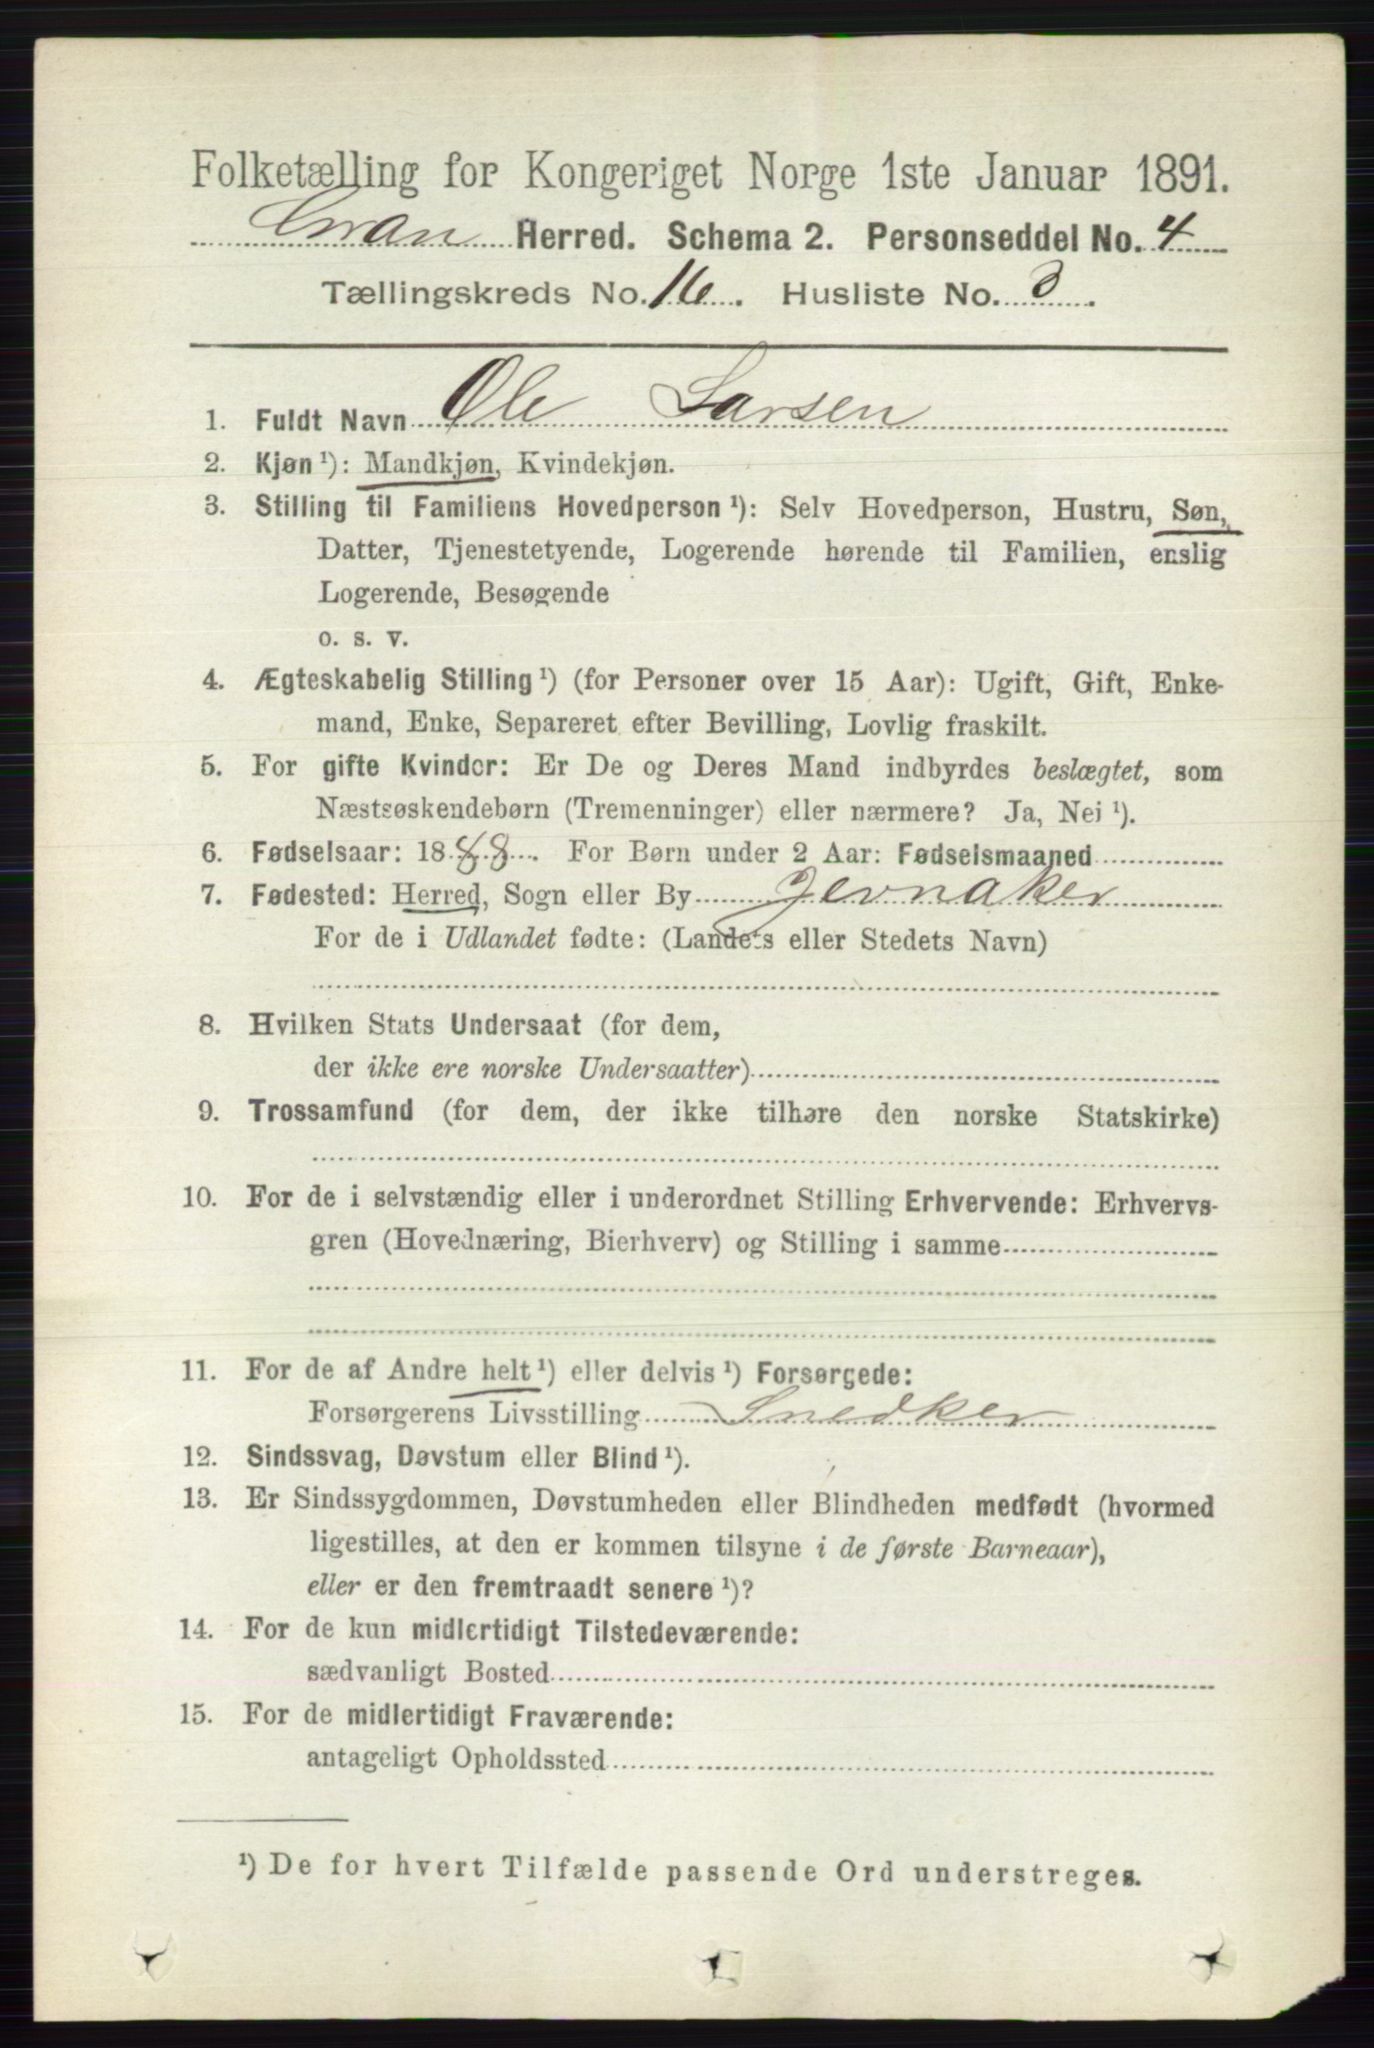 Folketælling for Kongeriget Norge 1ste Januar 1891.
Gran Herred. Schema 2. Personseddel No. 4
Tællingskreds No. 16. Husliste No. 3.
1. Fuldt Navn Ole Larsen
2. Kjøn ¹): Mandkjøn, Kvindekjøn.
3. Stilling til Familiens Hovedperson ¹): Selv Hovedperson, Hustru, Søn,
Datter, Tjenestetyende, Logerende hørende til Familien, enslig
Logerende, Besøgende
o. s. v.
4. Ægteskabelig Stilling ¹) (for Personer over 15 Aar): Ugift, Gift, Enke-
mand, Enke, Separeret efter Bevilling, Lovlig fraskilt.
5. For gifte Kvinder: Er De og Deres Mand indbyrdes beslægtet, som
Næstsøskendebørn (Tremenninger) eller nærmere? Ja, Nei ¹).
6. Fødselsaar: 1888. For Børn under 2 Aar: Fødselsmaaned
7. Fødested: Herred, Sogn eller By Jevnaker
For de i Udlandet fødte: (Landets eller Stedets Navn)
8. Hvilken Stats Undersaat (for dem,
der ikke ere norske Undersaatter)
9. Trossamfund (for dem, der ikke tilhøre den norske Statskirke)
10. For de i selvstændig eller i underordnet Stilling Erhvervende: Erhvervs-
gren (Hovednæring, Bierhverv) og Stilling i samme
11. For de af Andre helt ¹) eller delvis ¹) Forsørgede:
Forsørgerens Livsstilling Snedker
12. Sindssvag, Døvstum eller Blind ¹).
13. Er Sindssygdommen, Døvstumheden eller Blindheden medfødt (hvormed
ligestilles, at den er kommen tilsyne i de første Barneaar),
eller er den fremtraadt senere ¹)?
14. For de kun midlertidigt Tilstedeværende:
sædvanligt Bosted
15. For de midlertidigt Fraværende:
antageligt Opholdssted
¹) De for hvert Tilfælde passende Ord understreges.